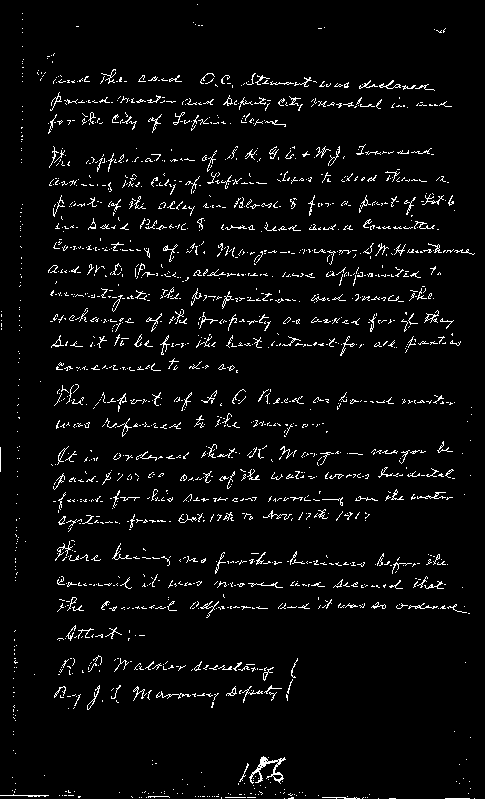 and the said O.C. Stewart was declared
pound master and Deputy City Marshal in and
for the City of Lufkin Texas
The application of S.K, G.E. & W.J. Townsend
asking the City of Lufkin Texas to deed them a
part of the alley in Block 8 for a part of Lot 6
in said Block 8 was read and a Committee
Consisting of K. Morgan mayor, S.W. Hawthorne
and W.D. Price, aldermen were appointed to
investigate the proposition and make the
exchange of the property as asked for if they
see it to be for the best interest for all parties
concerned to do so.
The report of A. O Reed as pound master
was referred to the mayor.
It is ordered that K. Morgan mayor be
paid out of the water works Incidental
fund for his services working on the water
system from Oct. 17th to Nov. 17th 1917
There being no further business before the
council it was moved and second that
the Council adjourn and it was so ordered
Attest:-
R.P. Walker Secretary
By J.T. Maroney Deputy
186